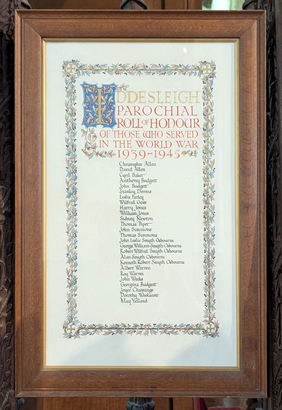 IDDESLEIGH
PAROCHIAL
ROLL OF HONOUR
OF THOSE WHO SERVED
IN THE WORLD WAR
1939-1945
Christopher Allen
David Allen
Cyril Baker
Anthony Budgett
John Budgett
Stanley Dennis
Luke Farley
Wilfrid Goss
Harry Jones
William Jones
Sidney Newton
Thomas Piper
John Simmons
Thomas Simmons
John Luke Smyth Osbourne
George William Smyth Osbourne
Robert Wilfrid Smyth Osbourne
Alan Smyth Osbourne
Kenneth Robert Smyth Osbourne
Albert Warren
Ray Warren
John Weeks
Georgina Budgett
Joyce Chammings
Dorothy
May Yelland